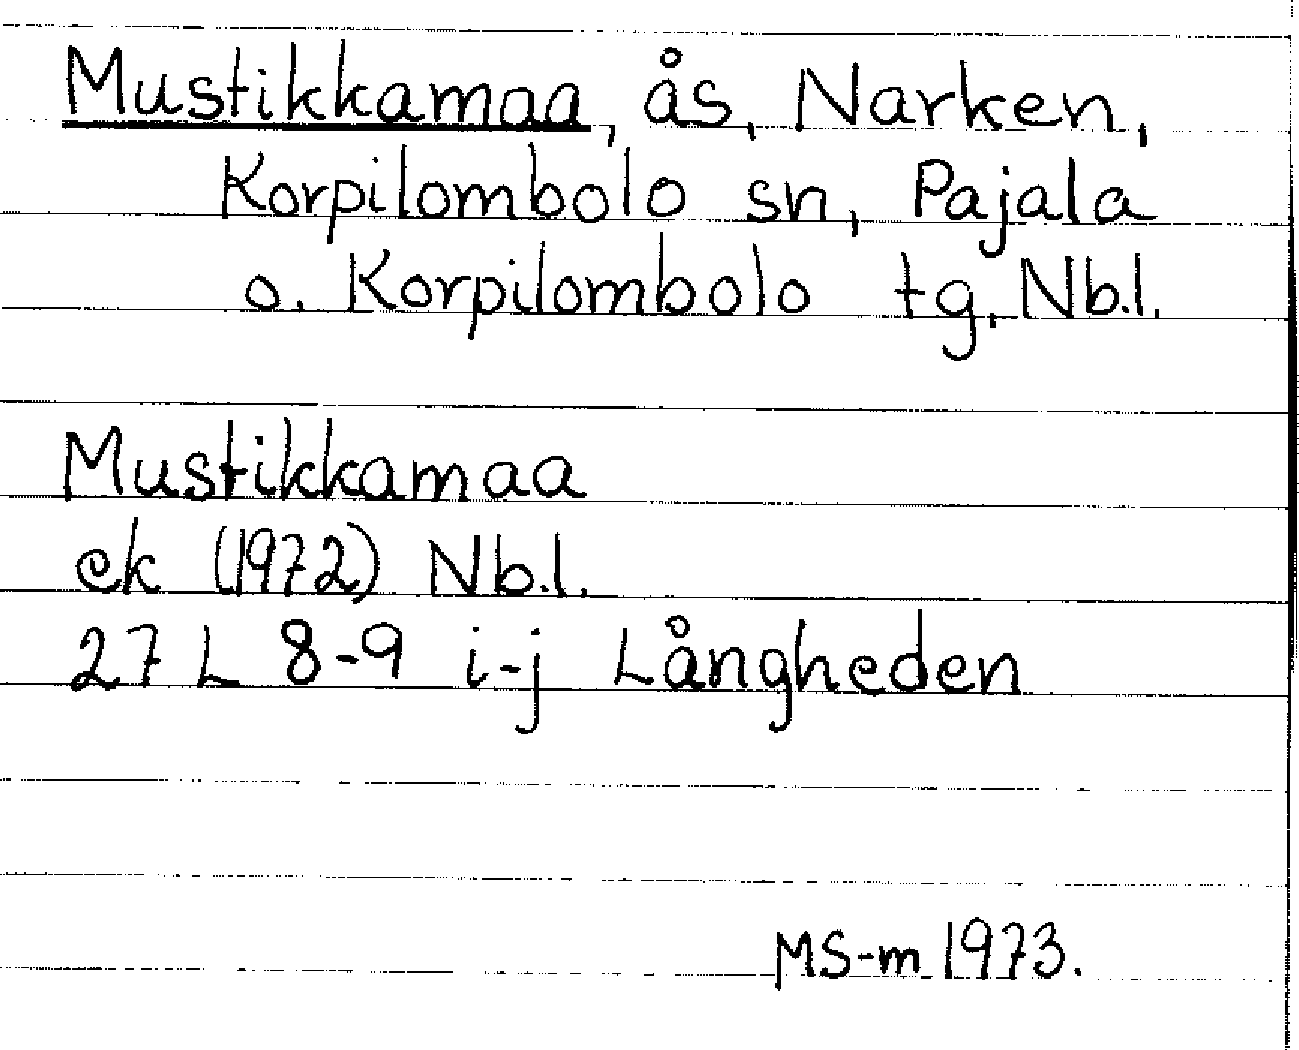 Mustikkamaa, ås, Narken,
Korpilombolo sn, Pajala
o. Korpilombolo tg, Nb.l.
Mustikkamaa
ek (1972) Nb.l.
27 L 8-9 i-j Långheden
MS-m 1973.